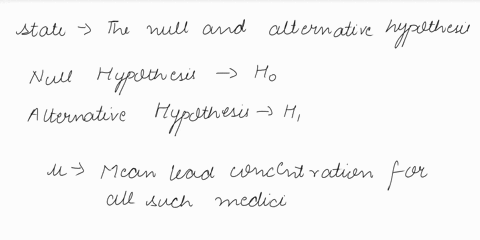 state → The null and alternative hypothesis
Null Hypothesis → H₀
Alternative Hypothesis → H₁
μ → Mean lead concentration for
all such medici